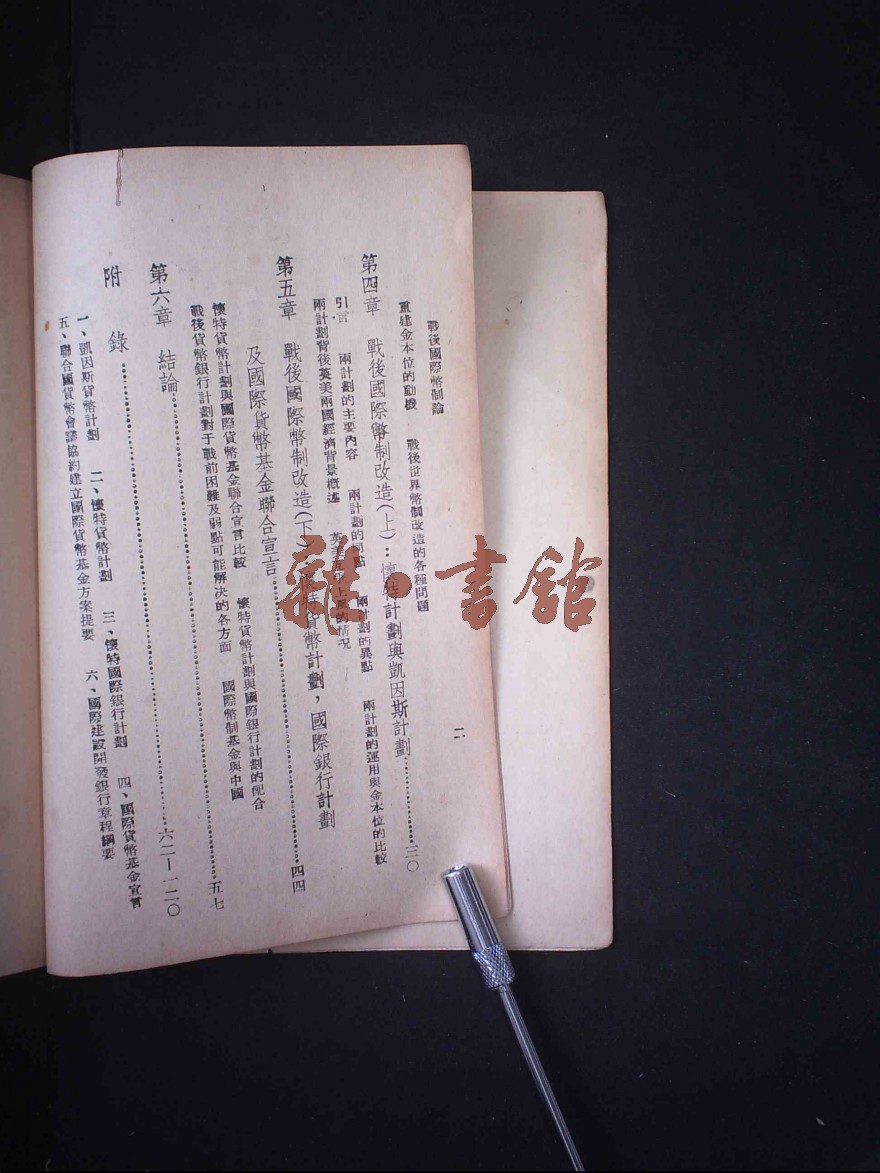 戰後國際幣制論
二
重建金本位的動機　戰後世界幣制改造的各種問題
第四章　戰後國際幣制改造(上)：懷特計劃與凱因斯計劃……三〇
引言　兩計劃的主要內容　兩計劃的同點　兩計劃的異點　兩計劃的運用與金本位的比較
兩計劃背後英美兩國經濟背景概述　英美
的情況
第五章　戰後國際幣制改造(下)：懷特貨幣計劃，國際銀行計劃
及國際貨幣基金聯合宣言……四四
懷特貨幣計劃與國際貨幣基金聯合宣言比較　懷特貨幣計劃與國際銀行計劃的配合
戰後貨幣銀行計劃對于戰前困難及弱點可能解決的各方面　國際幣制基金與中國
第六章　結論……五七
附　錄……六二—一二〇
一、凱因斯貨幣計劃　二、懷特貨幣計劃　三、懷特國際銀行計劃　四、國際貨幣基金宣言
五、聯合國貨幣會議協約建立國際貨幣基金方案提要　六、國際建設開發銀行章程綱要
雜·書館